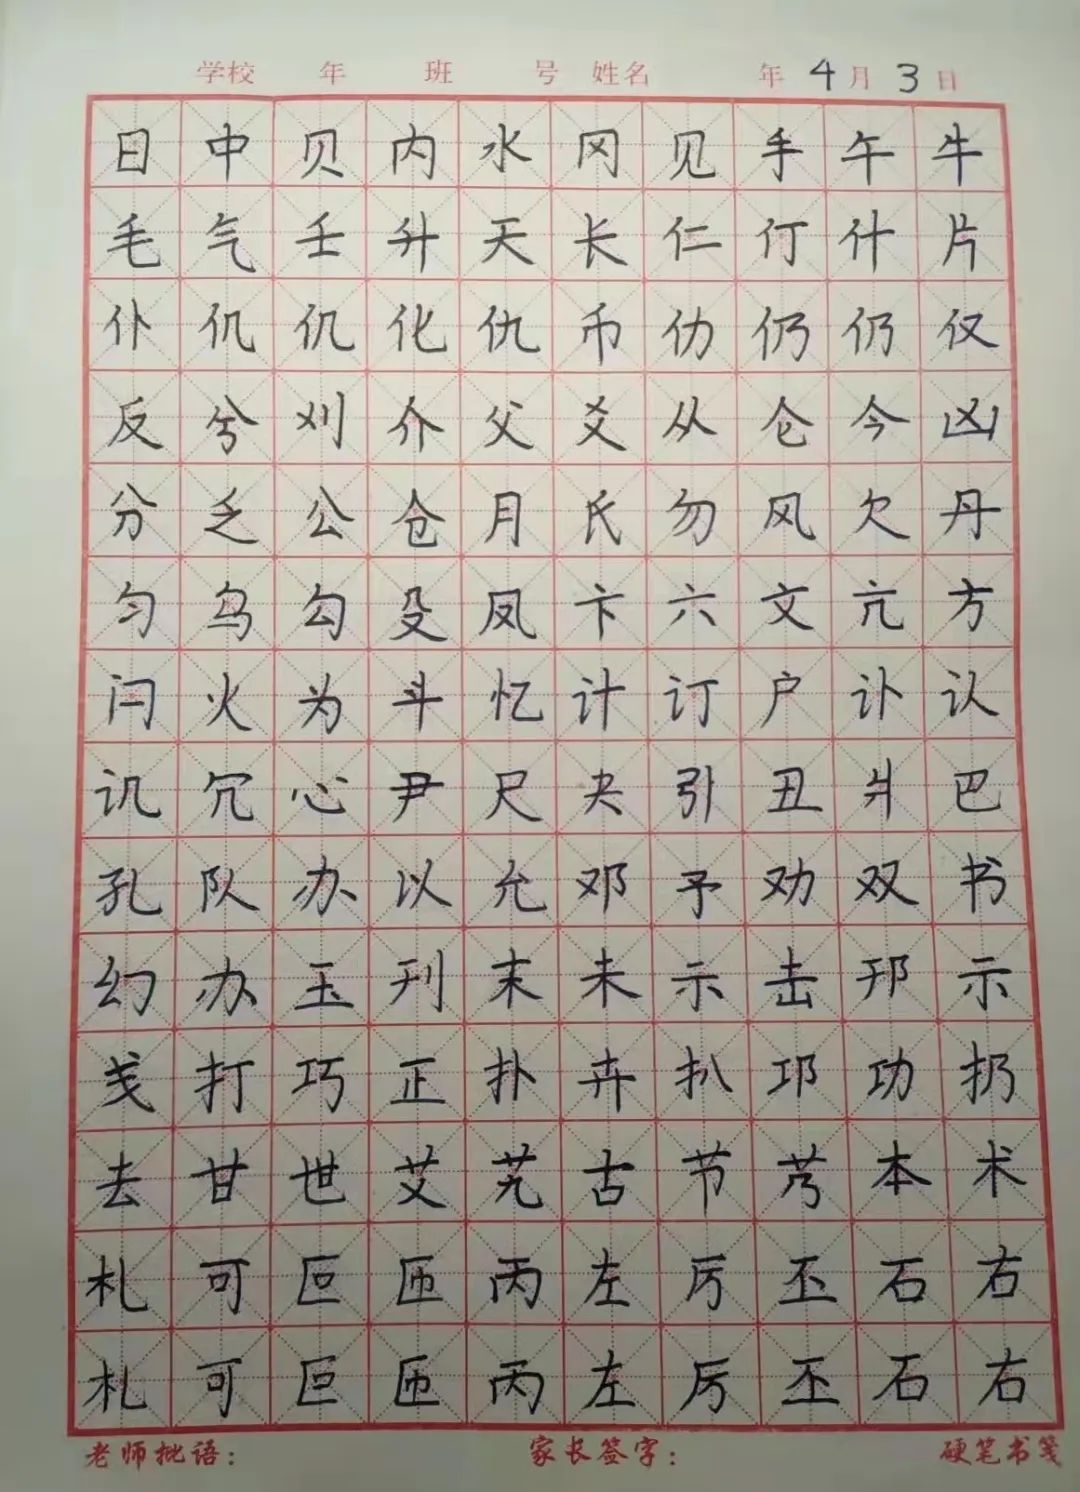 学校 年 班 号 姓名 年 4 月 3 日
日 中 贝 内 水 冈 见 手 午 牛
毛 气 壬 升 天 长 仁 仃 什 片
仆 仉 仉 化 仇 币 仂 仍 仍 仅
反 兮 刈 介 父 爻 从 仑 今 凶
分 乏 公 仓 月 氏 勿 风 欠 丹
匀 乌 勾 殳 凤 卞 六 文 亢 方
闩 火 为 斗 忆 计 订 户 讣 认
讥 冗 心 尹 尺 夬 引 丑 爿 巴
孔 队 办 以 允 邓 予 劝 双 书
幻 办 玉 刊 末 未 示 击 邗 示
戋 打 巧 正 扑 卉 扒 邛 功 扔
去 甘 世 艾 艽 古 节 艿 本 术
札 可 叵 匝 丙 左 厉 丕 石 右
札 可 叵 匝 丙 左 厉 丕 石 右
老师批语： 家长签字： 硬笔书笺